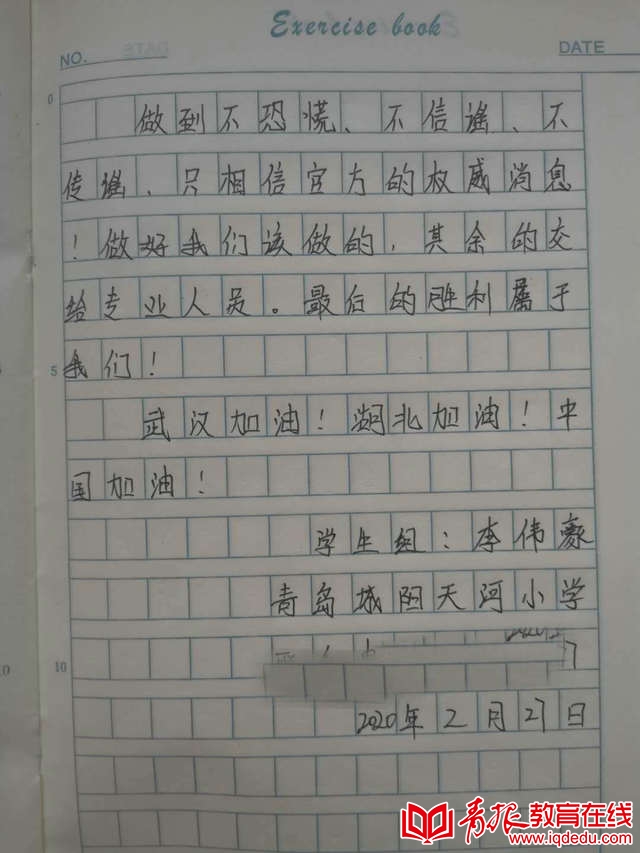 Exercise book
NO.
DATE
0
做到不恐慌、不信谣、不
传谣、只相信官方的权威消息
！做好我们该做的，其余的交
给专业人员。最后的胜利属于
5
我们！
武汉加油！湖北加油！中
国加油！
学生组：李伟豪
青岛城阳天河小学
10
2020年2月27日
青报教育在线
www.iqdedu.com